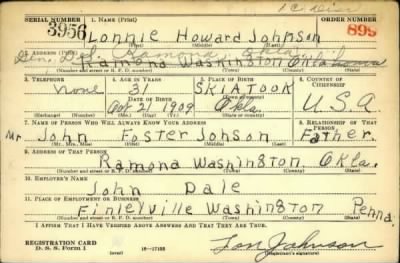 SERIAL NUMBER 1. NAME (Print) ORDER NUMBER
3956 Lonnie Howard Johnson 899
Gen. Del. Ramona Okla.
ADDRESS (Print)
Ramona Washington Oklahoma
(Number and street or R. F. D. number) (Town) (County) (State)
3. TELEPHONE 4. AGE IN YEARS 5. PLACE OF BIRTH 6. COUNTRY OF CITIZENSHIP
none 31 SKIATOOK
DATE OF BIRTH
21 1909 Okla. U.S.A.
(Exchange) (Number) (Mo.) (Day) (Yr.) (State or country)
7. NAME OF PERSON WHO WILL ALWAYS KNOW YOUR ADDRESS 8. RELATIONSHIP OF THAT PERSON
Mr. John Foster Johson Father.
(Mr., Mrs., Miss) (First) (Middle) (Last)
9. ADDRESS OF THAT PERSON
Ramona Washington Okla.
(Number and street or R. F. D. number) (Town) (County) (State)
10. EMPLOYER'S NAME
John Dale
11. PLACE OF EMPLOYMENT OR BUSINESS
Finleyville Washington Penna.
(Number and street or R. F. D. number) (Town) (County) (State)
I AFFIRM THAT I HAVE VERIFIED ABOVE ANSWERS AND THAT THEY ARE TRUE.
REGISTRATION CARD
D. S. S. Form 1 Lon Johnson
(Registrant's signature)